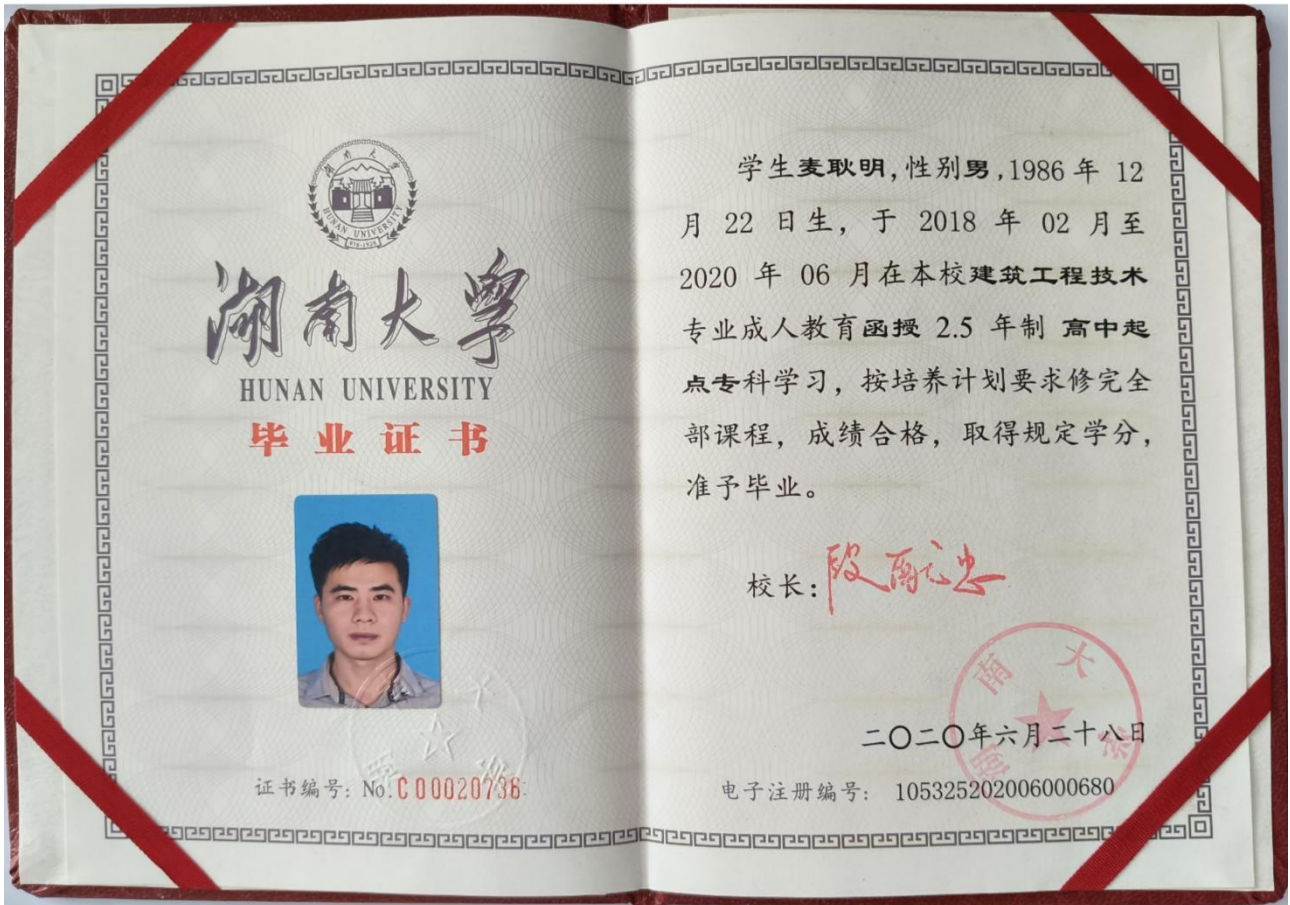 湖南大学
HUNAN UNIVERSITY
湖南大学
HUNAN UNIVERSITY
毕业证书
证书编号：No.C00020736
学生麦耿明，性别男，1986 年 12
月 22 日生，于 2018 年 02 月至
2020 年 06 月在本校建筑工程技术
专业成人教育函授 2.5 年制 高中起
点专科学习，按培养计划要求修完全
部课程，成绩合格，取得规定学分，
准予毕业。
校长：段献忠
湖南大学
二〇二〇年六月二十八日
电子注册编号： 105325202006000680